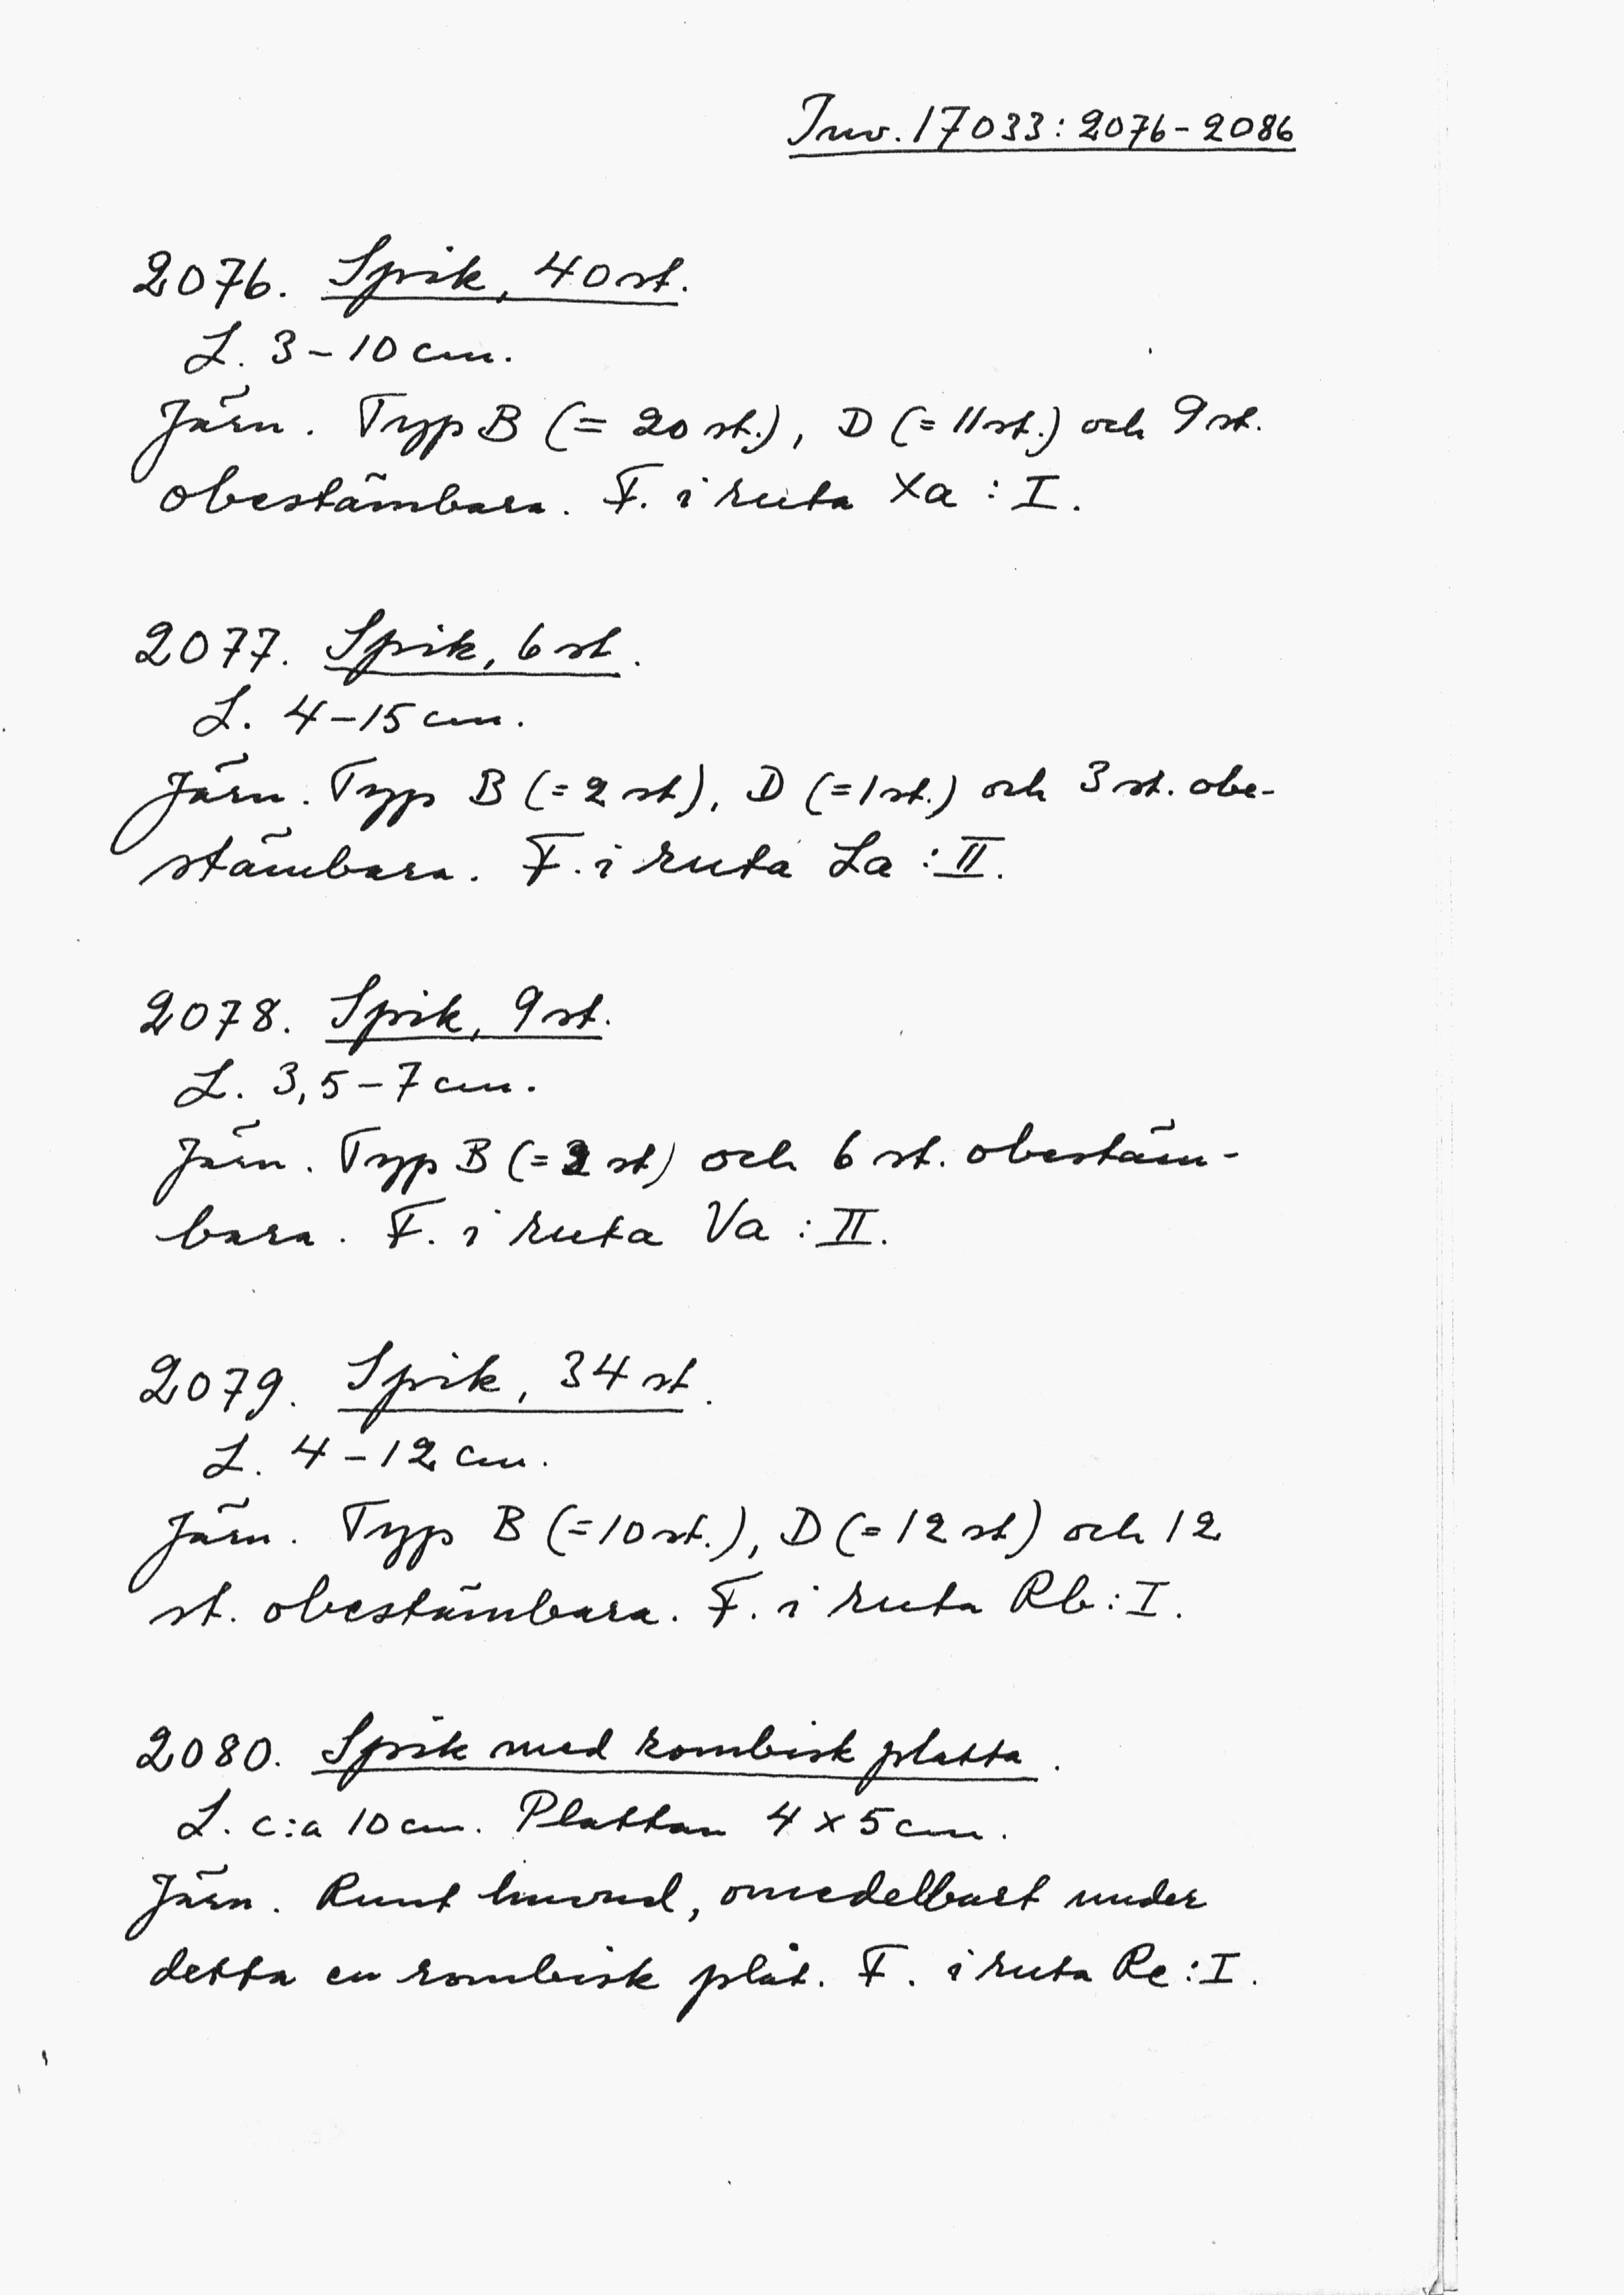 Inv. 17033:2076-2086
2076. Spik, 40 st.
L. 3-10 cm.
Järn. Typ B (= 20 st.), D (= 11 st.) och 9 st.
obestämbara. F. i ruta Xa : I.
2077. Spik, 6 st.
L. 4-15 cm.
Järn. Typ B (= 2 st), D (= 1 st.) och 3 st. obe-
stämbara. F. i ruta La : II.
2078. Spik, 9 st.
L. 3,5-7 cm.
Järn. Typ B (= st) och 6 st. obestäm-
bara. F. i ruta Va : II.
2079. Spik, 34 st.
L. 4-12 cm.
Järn. Typ B (= 10 st.), D (= 12 st) och 12
st. obestämbara. F. i ruta Rb : I.
2080. Spik med rombisk platta.
L. c:a 10 cm. Plattan 4 x 5 cm.
Järn. Runt huvud, omedelbart under
detta en rombisk plåt. F. i ruta Re : I.